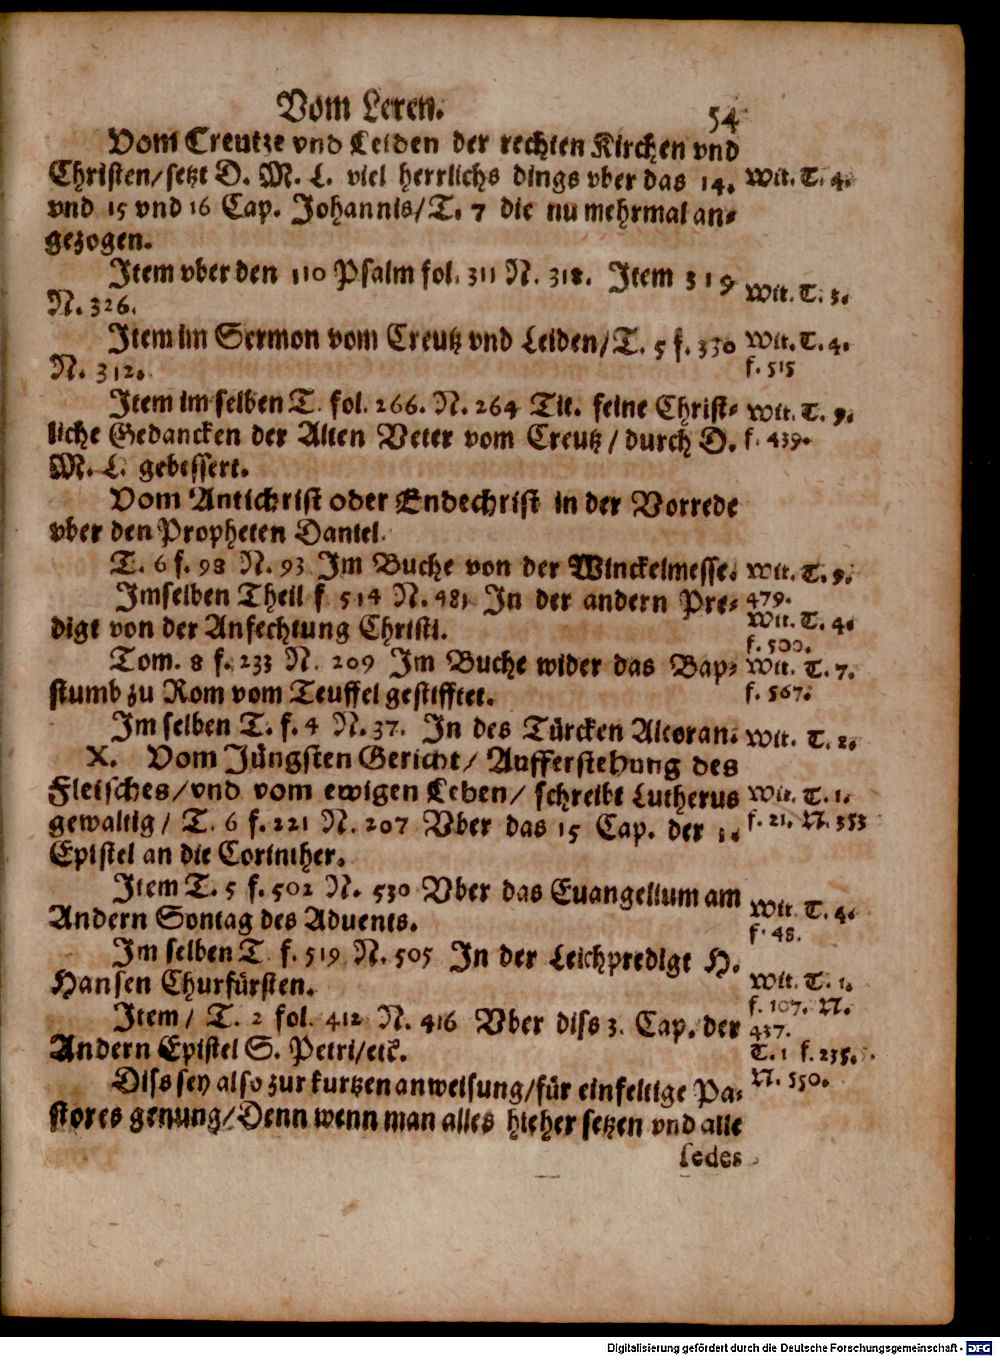 Vom Leren.
54
Vom Creutze vnd Leiden der rechten Kirchen vnd
Christen/setzt D. M. L. viel herrlichs dings vber das 14.
Wit. T. 4.
vnd 15 vnd 16 Cap. Johannis/T. 7 die nu mehrmal an-
gezogen.
Item vber den 110 Psalm fol. 311 N. 318. Item 319
Wit. T. 3.
N. 326.
Item im Sermon vom Creutz vnd Leiden/T. 5 f. 330
Wit. T. 4.
N. 312.
f. 515
Item im selben T. fol. 266. N. 264 Tit. feine Christ-
Wit. T. 9.
liche Gedancken der Alten Veter vom Creutz/durch D.
f. 439.
M. L. gebessert.
Vom Antichrist oder Endechrist in der Vorrede
vber den Propheten Daniel.
T. 6 f. 98 N. 93 Im Buche von der Winckelmesse.
Wit. T. 9.
Imselben Theil f 514 N. 481 In der andern Pre-
479.
Wit. T. 4.
digt von der Anfechtung Christi.
f. 500.
Tom. 8 f. 233 N. 209 Im Buche wider das Bap-
Wit. T. 7.
stumb zu Rom vom Teuffel gestifftet.
f. 567.
Im selben T. f. 4 N. 37. In des Türcken Alcoran.
Wit. T. 2.
X. Vom Jüngsten Gericht/ Aufferstehung des
Fleisches/vnd vom ewigen Leben/ schreibt Lutherus
Wit. T. 1.
gewaltig/ T. 6 f. 221 N. 207 Vber das 15 Cap. der 1.
f. 21. N. 353
Epistel an die Corinther.
Item T. 5 f. 502 N. 530 Vber das Euangelium am
Wit. T. 4.
Andern Sontag des Aduents.
f. 48.
Im selben T. f. 519 N. 505 In der Leichpredigt H.
Hansen Churfürsten.
Wit. T. 1.
f. 107. N.
Item/ T. 2 fol. 412 N. 416 Vber diss 3. Cap. der
437.
Andern Epistel S. Petri/etc.
T. 1 f. 235.
Diss sey also zur kurtzen anweisung/für einfeltige Pa-
N. 550.
stores genung/Denn wenn man alles hieher setzen vnd alle
sedes
Digitalisierung gefördert durch die Deutsche Forschungsgemeinschaft - DFG